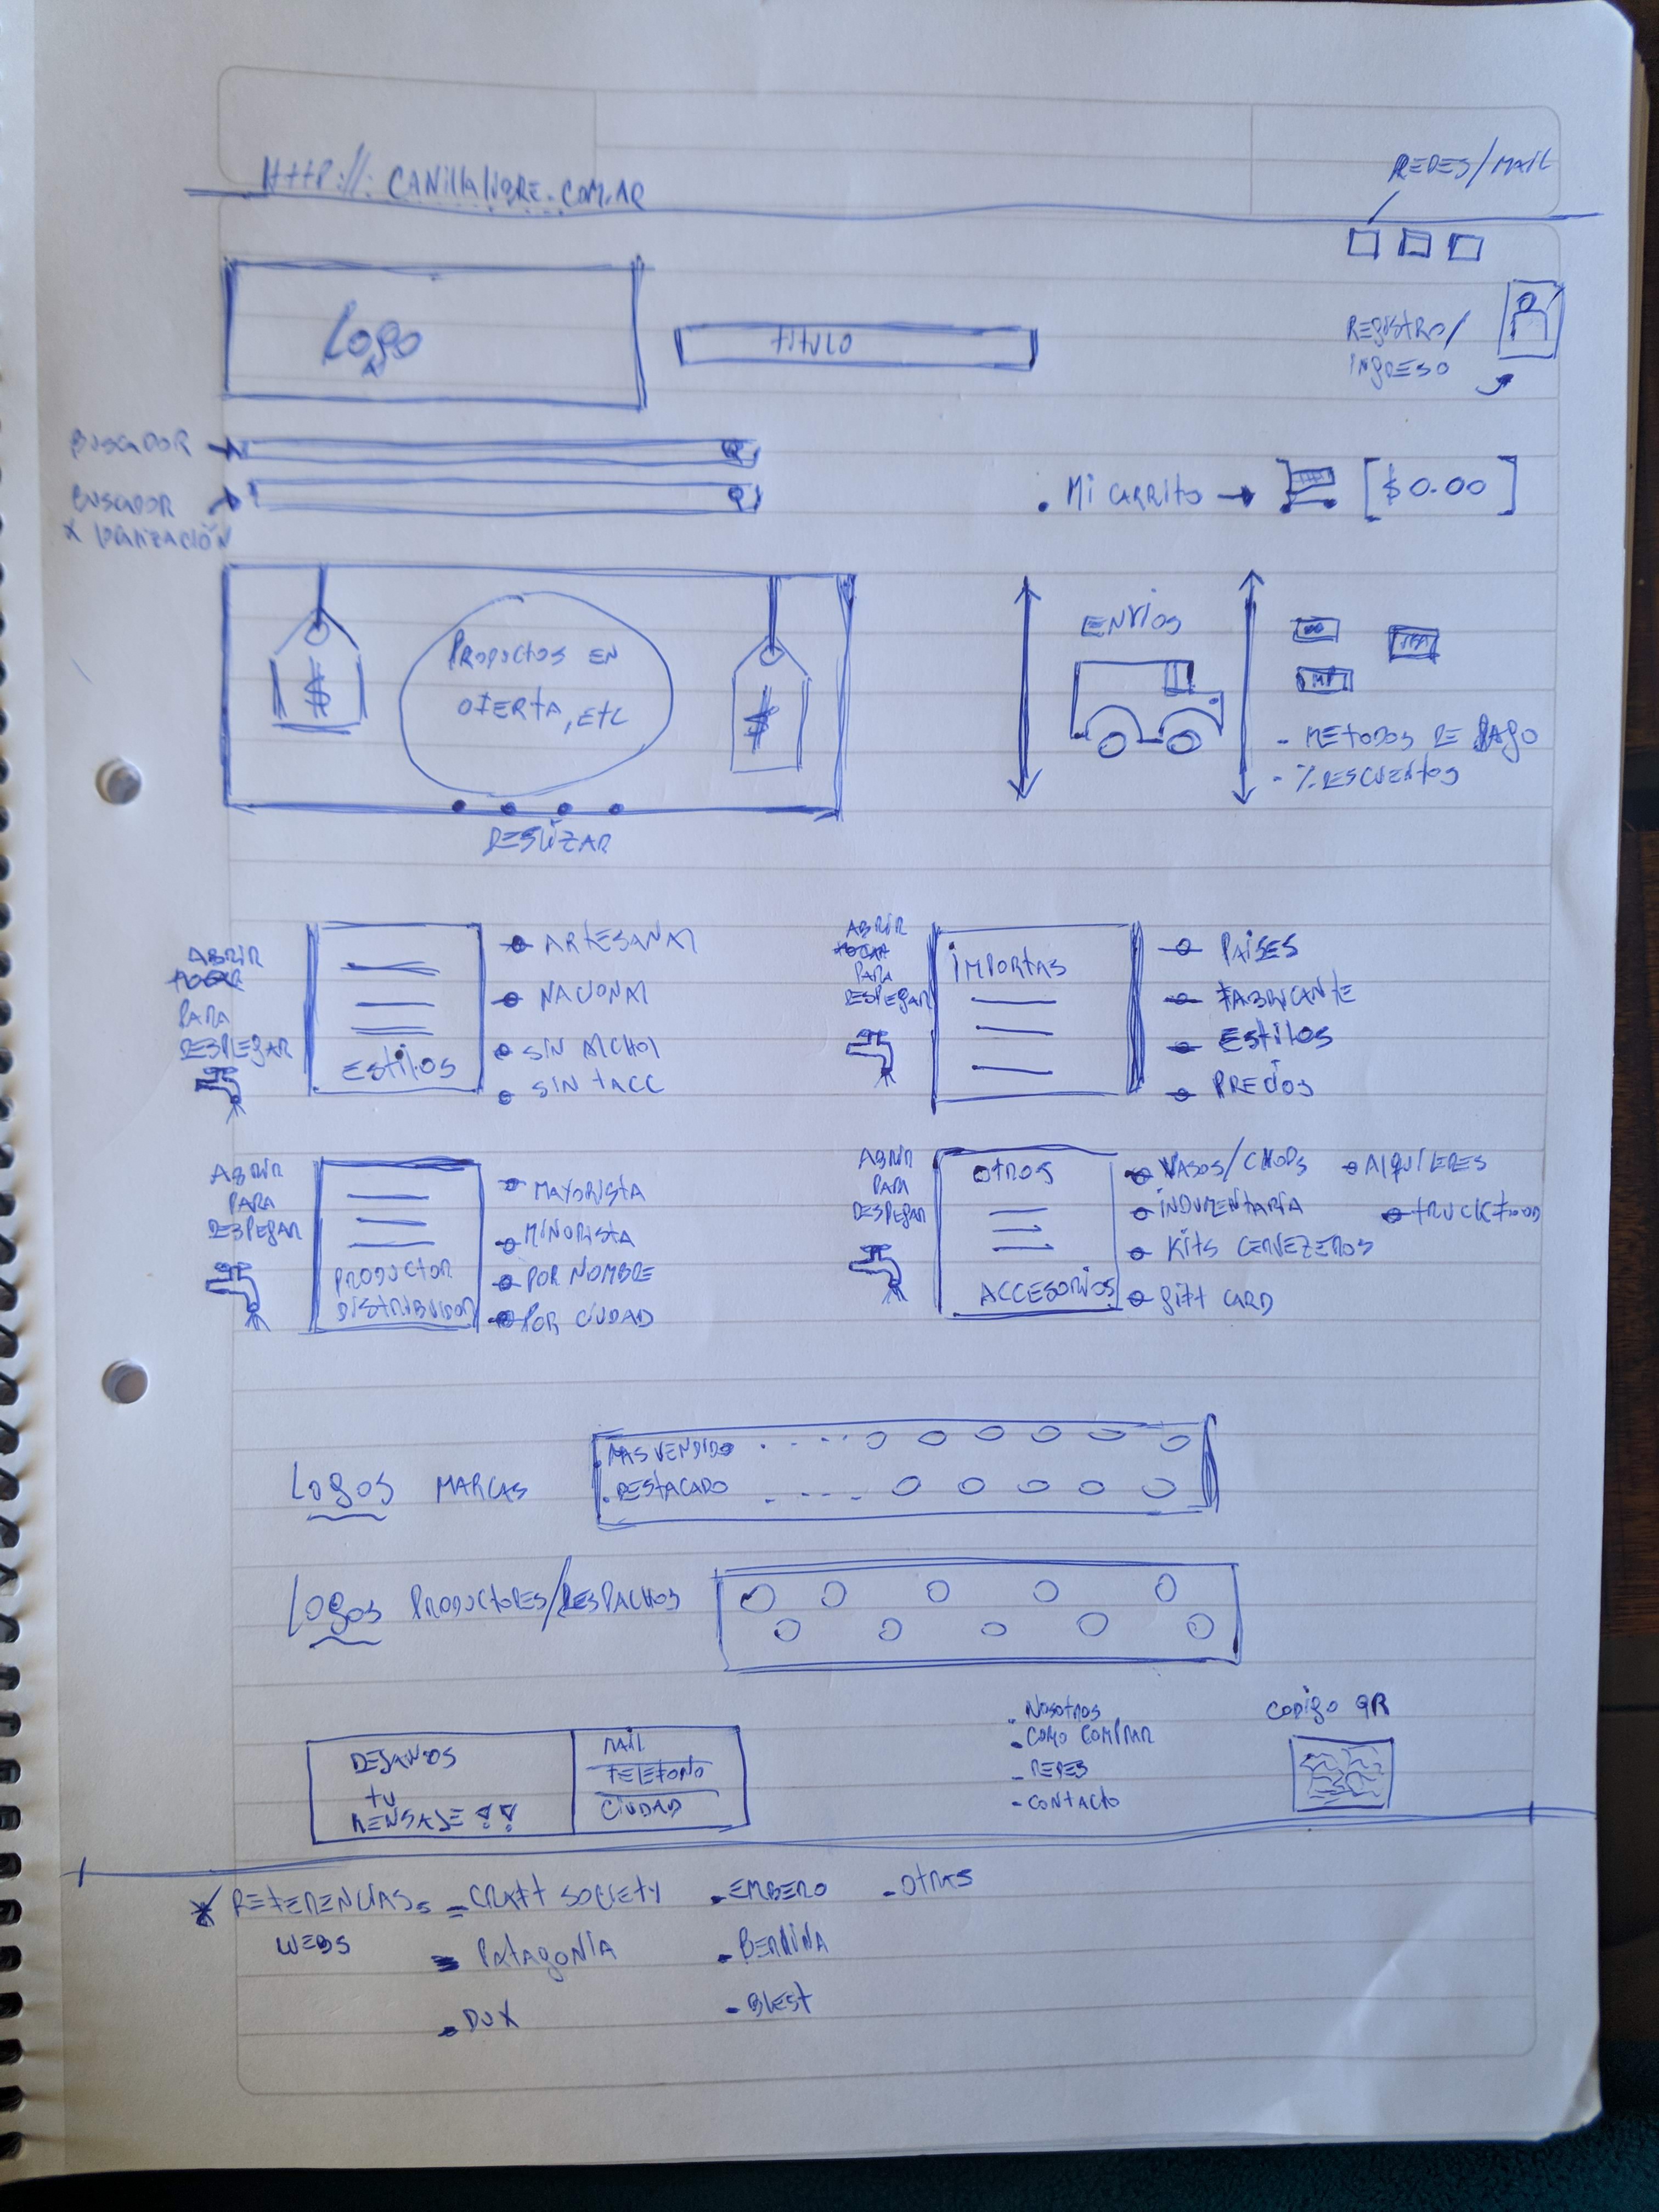 HTTP://: CANILLALIBRE.COM.AR
REDES/MAIL
Logo
TITULO
REGISTRO/
INGRESO
BUSCADOR
BUSCADOR
X
. MI CARRITO → [$0.00]
PRODUCTOS EN
OFERTA, ETC
$
$
DESLIZAR
ENVIOS
MP
- METODOS DE PAGO
- % DESCUENTOS
ABRIR
PARA
DESPLEGAR
ESTILOS
ARTESANAL
NACIONAL
SIN ALCHOL
SIN TACC
ABRIR
PARA
DESPEGAR
IMPORTAS
PAISES
FABRICANTE
ESTILOS
PRECIOS
ABRIR
PARA
DESPEGAR
PRODUCTOR
DISTRIBUIDOR
MAYORISTA
MINORISTA
POR NOMBRE
POR CIUDAD
ABRIR
PARA
DESPEGAR
OTROS
ACCESORIOS
VASOS/CHOPS
ALQUILERES
INDUMENTARIA
TRUCKFOOD
KITS CERVEZEROS
GIFT CARD
LOGOS MARCAS
. MAS VENDIDO
. DESTACADO
LOGOS PRODUCTORES/DESPACHOS
DEJANOS
TU
MENSAJE !!
MAIL
TELEFONO
CIUDAD
. NOSOTROS
. COMO COMPRAR
- REDES
- CONTACTO
CODIGO QR
* REFERENCIAS =
WEBS
- CRAFT SOCIETY
- PATAGONIA
. DUX
. EMBERO
. BERLINA
- BLEST
- OTRAS